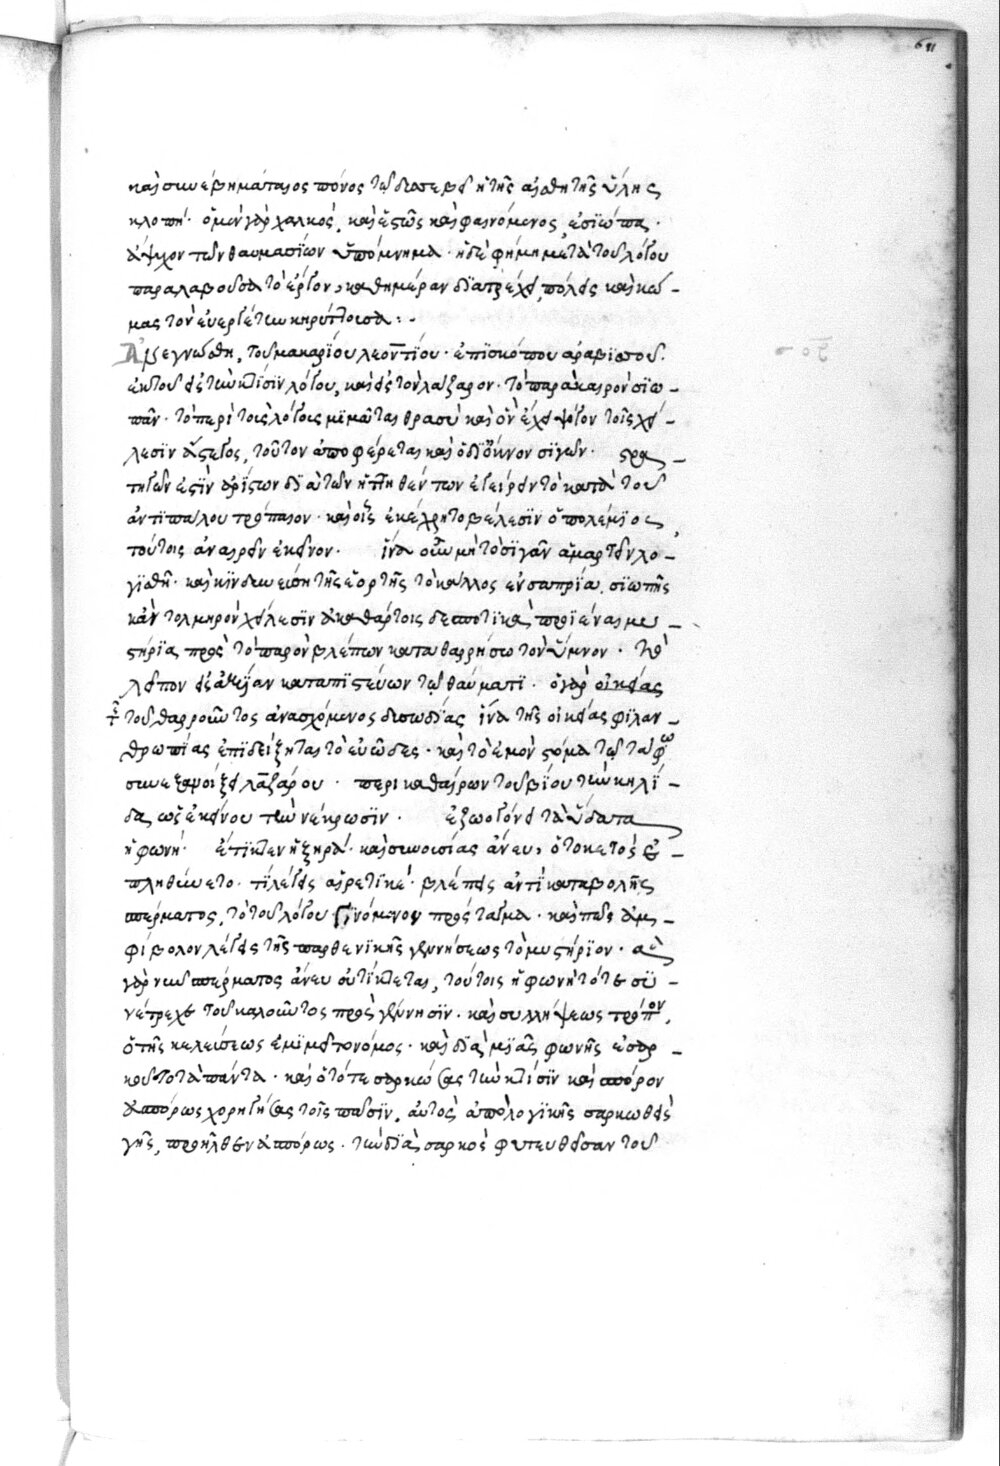 καὶ συνέβη μάταιος πόνος τῷ δυσσεβεῖ ἡ τῆς αἰσθητῆς ὕλης
κλοπή· ὁ μὲν γὰρ χαλκὸς, καὶ ἑστῶς καὶ φαινόμενος, ἐσιώπα·
ἄψυχον τῶν θαυμασίων ὑπόμνημα· ἡ δὲ φήμη μετὰ τοῦ λόγου
παραλαβοῦσα τὸ ἔργον, καθημέραν διατρέχει, πόλεις καὶ κώ-
μας τὸν εὐεργέτην κηρύττουσα:-
Ἀνεγνώσθη, τοῦ μακαρίου λεοντίου· ἐπισκόπου ἀραβισσοῦ·
ἐκ τοῦ εἰς τὴν κτίσιν λόγου, καὶ εἰς τὸν λάζαρον· τὸ παρὰ καιρὸν σιω-
πᾶν· τὸ περιττοῖς λόγοις μιμεῖται θρασὺ καὶ ὃν ἔχει ψόγον τοῖς χεί-
λεσιν ἄγελος, τοῦτον ἀποφέρεται καὶ ὁ δι' ὄκνον σιγῶν· στρα-
τηγῶν ἐστὶν ἀρίστων δι' αὐτῶν ἡττηθέντων ἐγείρειν τὸ κατὰ τοῦ
ἀντιπάλου τρόπαιον· καὶ οἷς ἐκέχρητο βέλεσιν ὁ πολέμιος,
τούτοις ἀναιρεῖν ἐκεῖνον· ἵνα οὖν μὴ τὸ σιγᾶν ἁμαρτεῖν λο-
γισθῇ· καὶ κινδυνεύσῃ τῆς ἑορτῆς τὸ κάλλος ἐν σαπρίᾳ σιωπῆς
κἂν τολμηρὸν χείλεσιν ἀκαθάρτοις δεσποτικὰ προϊέναι μυ-
στήρια, πρὸς τὸ παρὸν βλέπων καταθαρρήσω τὸν ὕμνον· τὸ
λεῖπον εἰς ἀξίαν καταπιστεύων τῷ θαύματι· ὁ γὰρ οἰκείας
τοῦ θαρροῦντος ἀνασχόμενος δυσωδίας ἵνα τῆς οἰκείας φιλαν-
θρωπίας ἐπιδείξηται τὸ εὐῶδες· καὶ τὸ ἐμὸν στόμα τῷ τάφῳ
συνεξανοίξει λαζάρου· περικαθαίρων τοῦ βίου τὴν κηλῖ
δα, ὡς ἐκείνου τὴν νέκρωσιν· ἐζωογόνει τὰ ὕδατα
ἡ φωνή· ἔτικτεν ἡ ξηρά· καὶ συνουσίας ἄνευ, ὁ τοκετὸς ἐ-
πληθύνετο· τί λέγεις αἱρετικέ· βλέπεις ἀντὶ καταβολῆς
σπέρματος, τὸ τοῦ λόγου γινόμενον πρόσταγμα· καὶ πῶς ἀμ-
φίβολον λέγεις τῆς παρθενικῆς γεννήσεως τὸ μυστήριον· αἳ
γὰρ νῦν σπέρματος ἄνευ οὐ τίκτεται, τούτοις ἡ φωνὴ τότε συ-
νέτρεχε τοῦ καλοῦντος πρὸς γέννησιν· καὶ συλλήψεως τρόπον,
ὁ τῆς κελεύσεως ἐμιμεῖτο νόμος· καὶ διὰ μιᾶς φωνῆς ἐσαρ-
κοῦτο τὰ πάντα· καὶ ὁ τότε σαρκώσας τὴν κτίσιν καὶ σπόρον
ἀσπόρως χορηγήσας τοῖς πᾶσιν, αὐτὸς ἀπὸ λογικῆς σαρκωθεὶς
γῆς, προῆλθεν ἀσπόρως· τὴν διὰ σαρκὸς φυτευθεῖσαν τοῦ